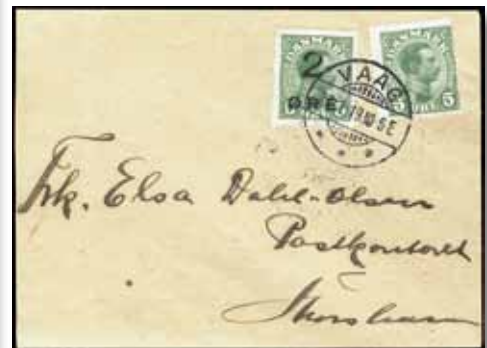 DANMARK DANMARK
2
ØRE
5
VAAG
Frk. Elsa Dahl-Olsen
Postkontoret
Thorshavn